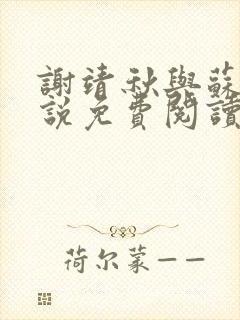 謝靖秋與蘇
說免費閱讀
荷尔蒙——